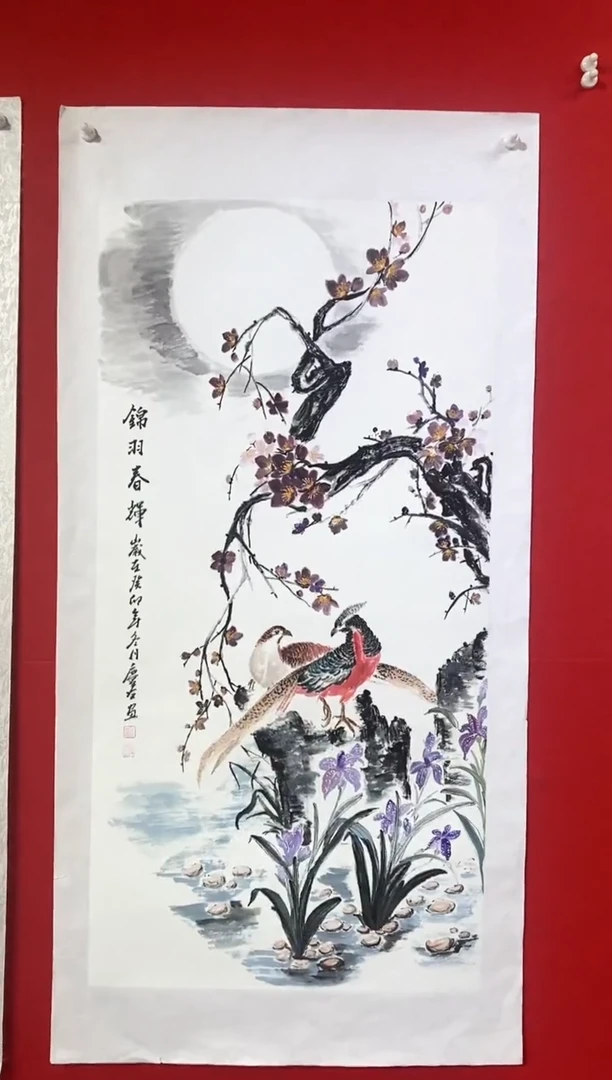 錦羽春輝
歲在癸卯年冬月